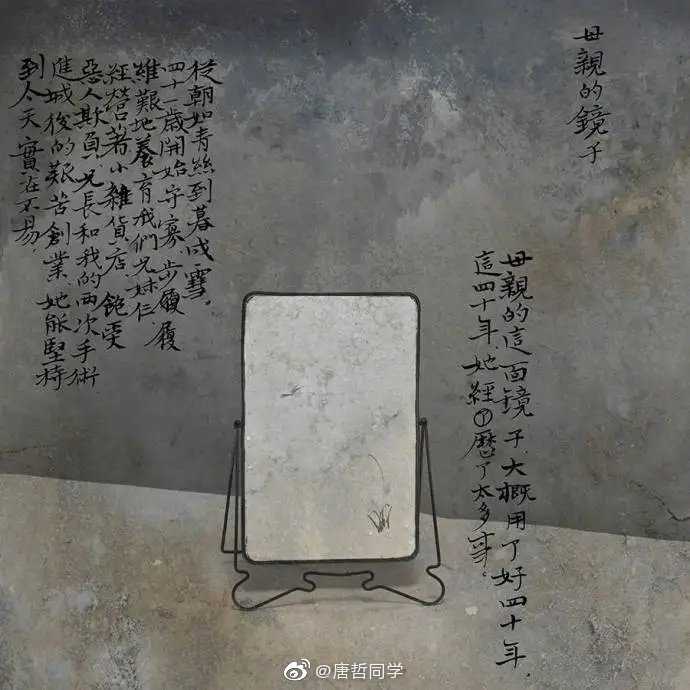 母親的鏡子
母親的這面鏡子，大概用了好四十年，
這四十年她經歷了太多事。
從朝如青絲到暮成雪，
四十一歲開始守寡步履履
維艱地養育我們兄妹仨
經營著小雜貨店飽受
惡人欺負，兄長和我的兩次手術
進城後的艱苦創業她能堅持
到今天實在不易，
@唐哲同學